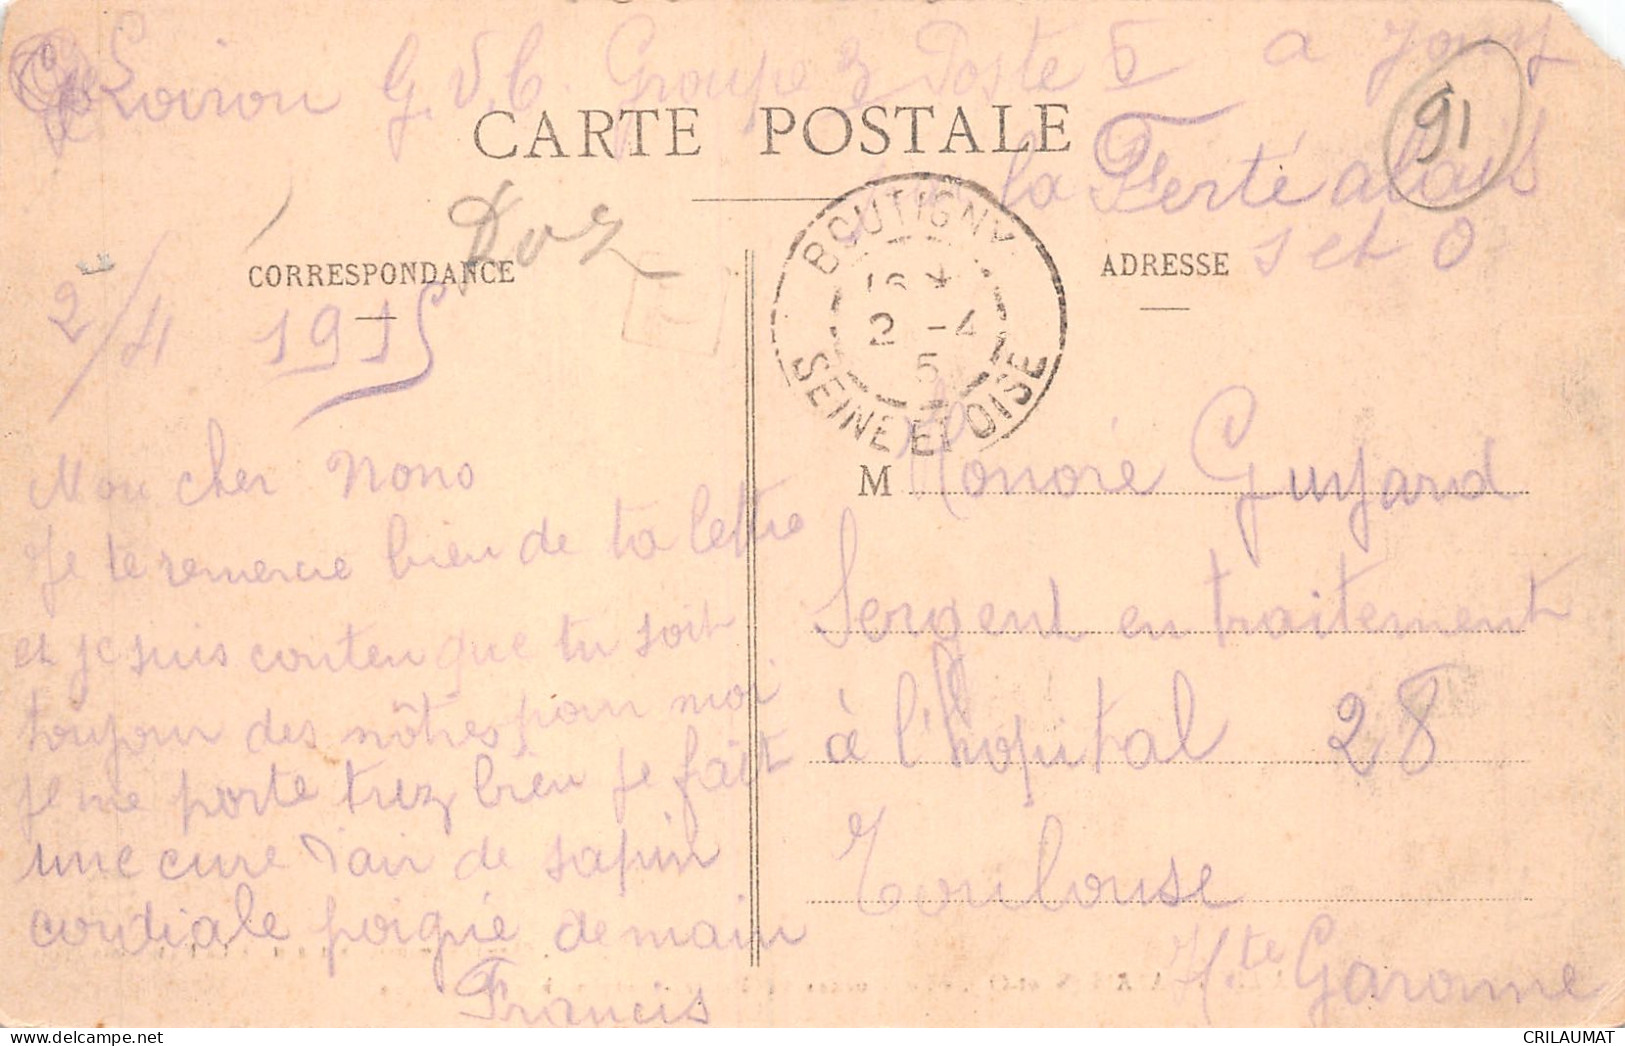 Loiron G.V.C. Groupe 3 Poste 5 a Jouy
CARTE POSTALE
la Ferté alais
S et O
91
BOUTIGNY
16 *
2 -4
5
SEINE ET OISE
CORRESPONDANCE
ADRESSE
2/4 1915
Mon cher Nono
Je te remercie bien de ta lettre
et je suis conten que tu soit
toujour des nôtres pour moi
je me porte trez bien je fait
une cure d'air de sapin
cordiale poigné de main
Francis
M Honoré Guyard
Sergent en traitement
à l'hopital 28
Toulouse
Hte Garonne
CRILAUMAT